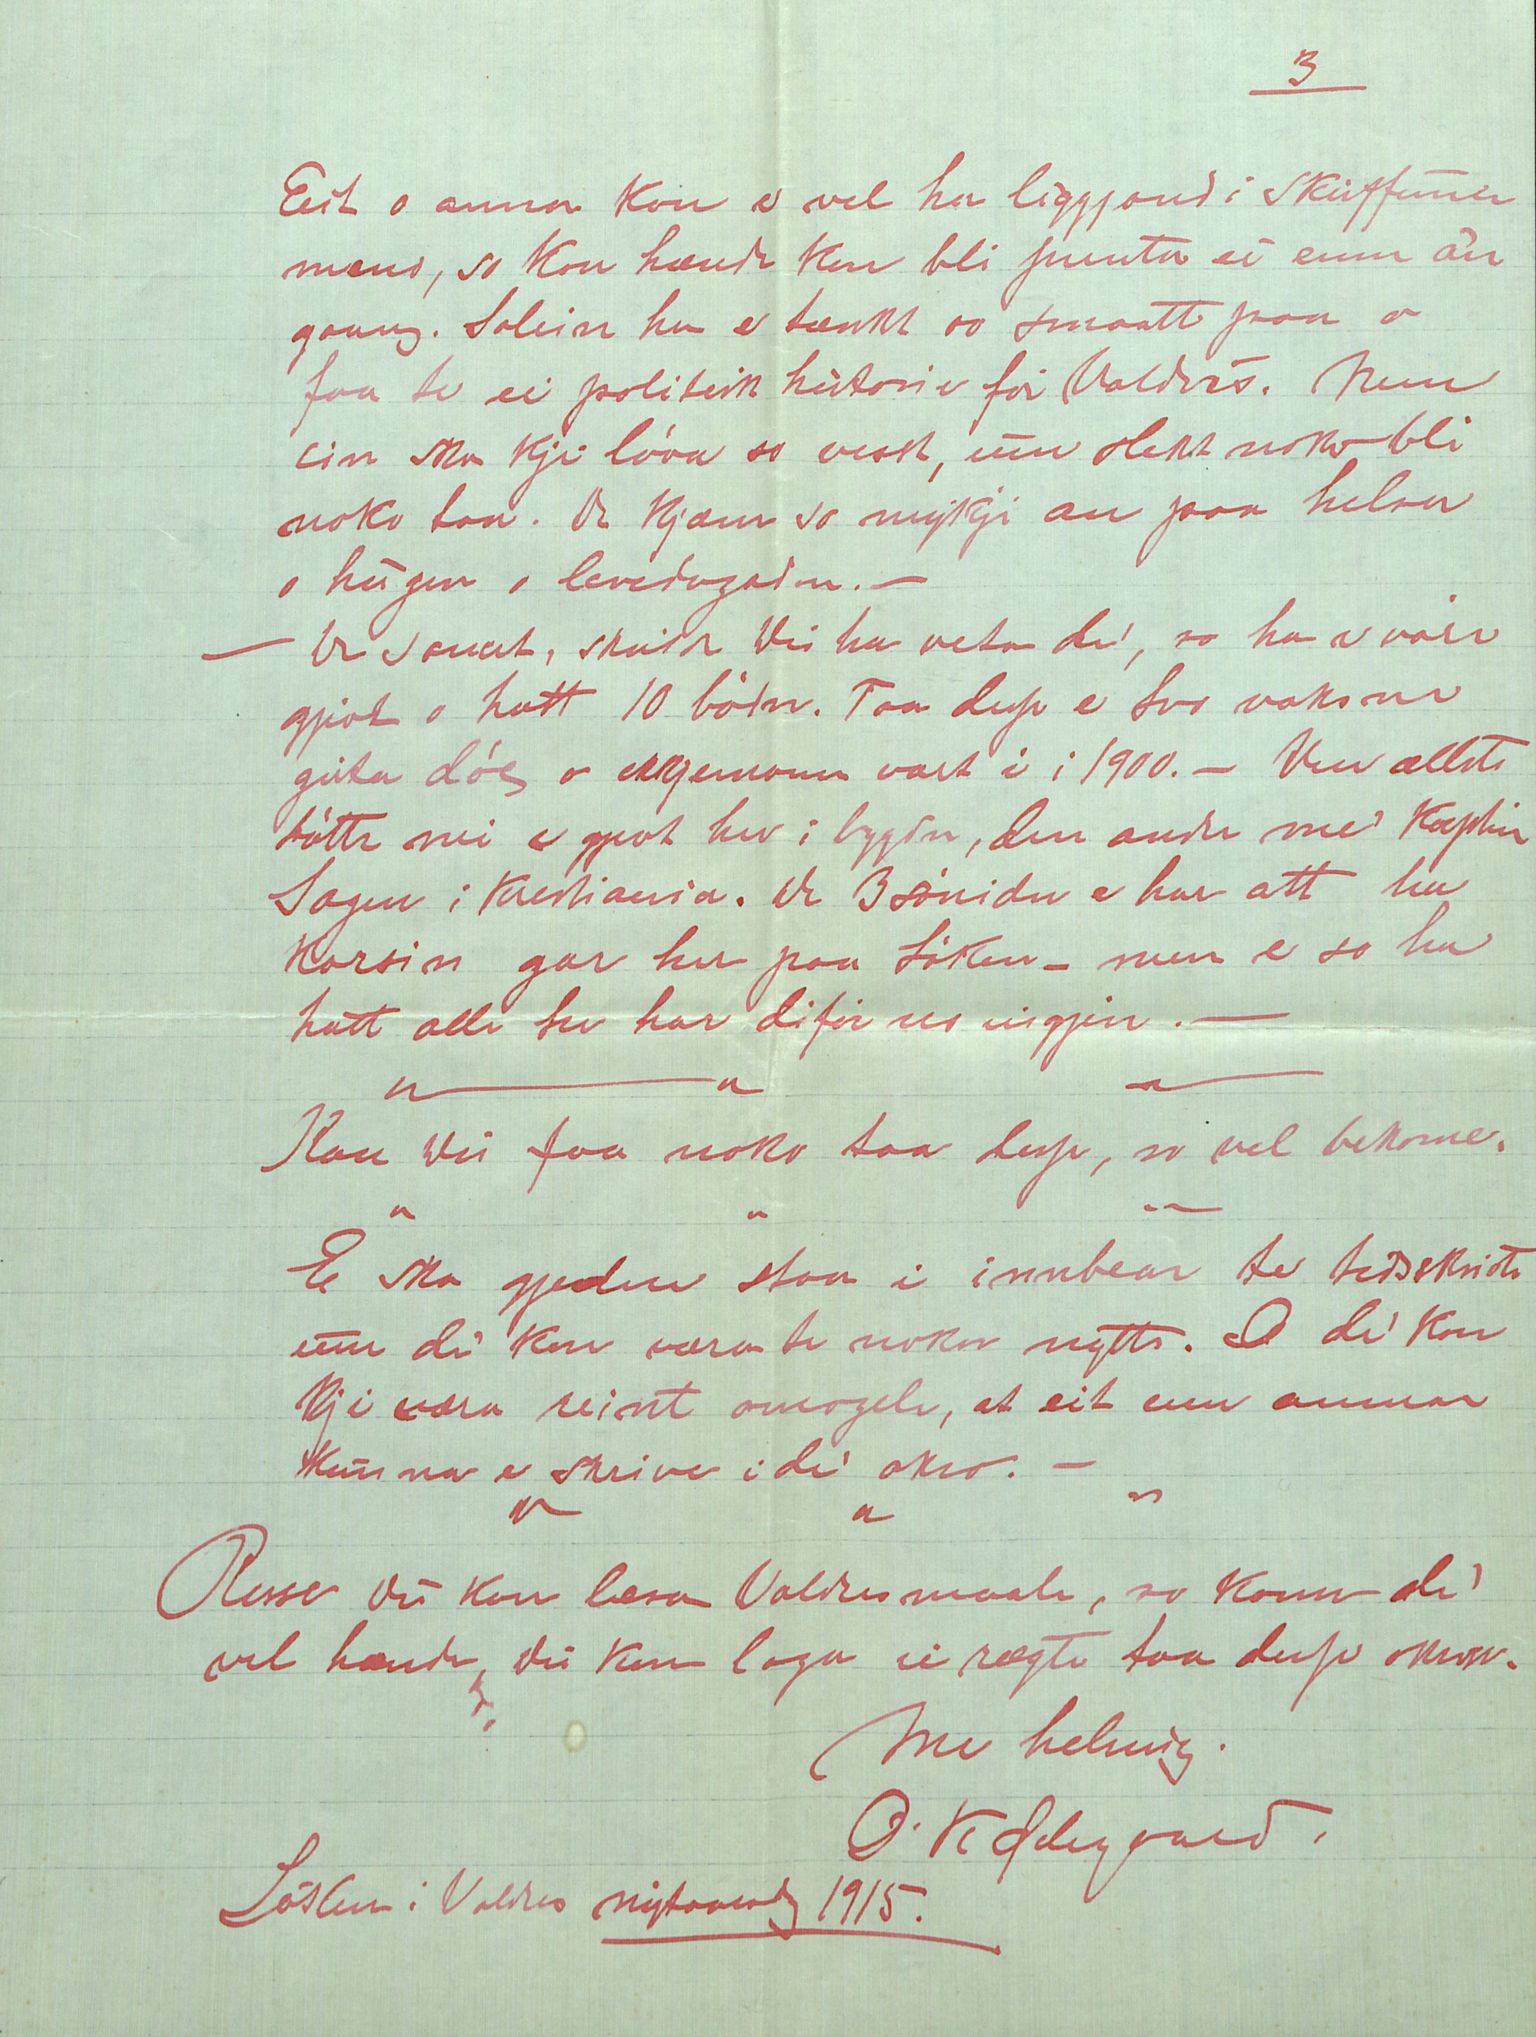 3
Eeit o anna kan e vel ha liggjand i Skuffunn
mens, so kan hænde kan bli prenta ei enn ån
gaang. Solein ha e tænkt so smaatt paa o
faa te ei politisk historie før Valdris. Men
ein ska kji lóva so vesst, um slekt noko bli
noko taa. De kjæm so mykji an paa helsa
o hugen o levedagadn. —
— De sannt, skulde du ha veta dé, so ha e vore
gjift o hatt 10 bódn. Taa desse e tvo vaksne
guta dóe, o ekkjemann vart e i 1900. — Den ællste
dótte mi e gjift her i bygdn, den andre mé Kaptin
Sagen i Krestiania. De 3 sónidn e har att ha
korsin gar her paa Lóken — men e so ha
hatt alle her har difør us eisgjin. —
" — " " —
Kan du faa noko taa desse, so vel bekome.
" " " —
E ska gjedne staa i innbear te tidsskrifte
um dé kan væra te nokor nytte. O dé kan
kji væra reint omogele, at eit um annar
kunna e skrive i dé okso. —
" " "
Resse du kan læsa Valdresmaale, so kann dé
vel hænde, du kan laga ei rægle taa desse okso.
Me helsing.
O. K. Ødegaard.
Lóken i Valdres nyttaarsdag 1915.